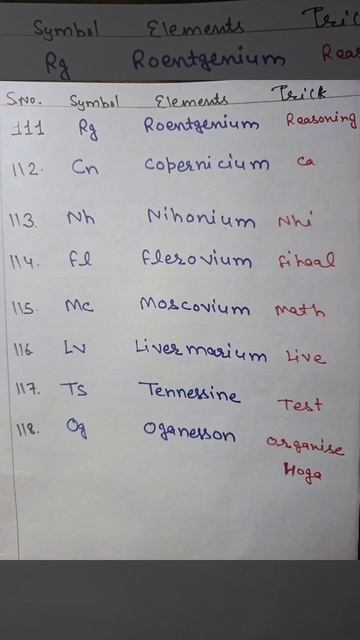 Symbol Elements Tric
Rg Roentgenium Reas
S.no. Symbol Elements Trick
111 Rg Roentgenium Reasoning
112. Cn Copernicium Ca
113. Nh Nihonium Nhi
114. Fl Flerovium fihaal
115. Mc Moscovium Math
116 Lv Livermarium Live
117. Ts Tennessine Test
118. Og Oganesson Organise
Hoga